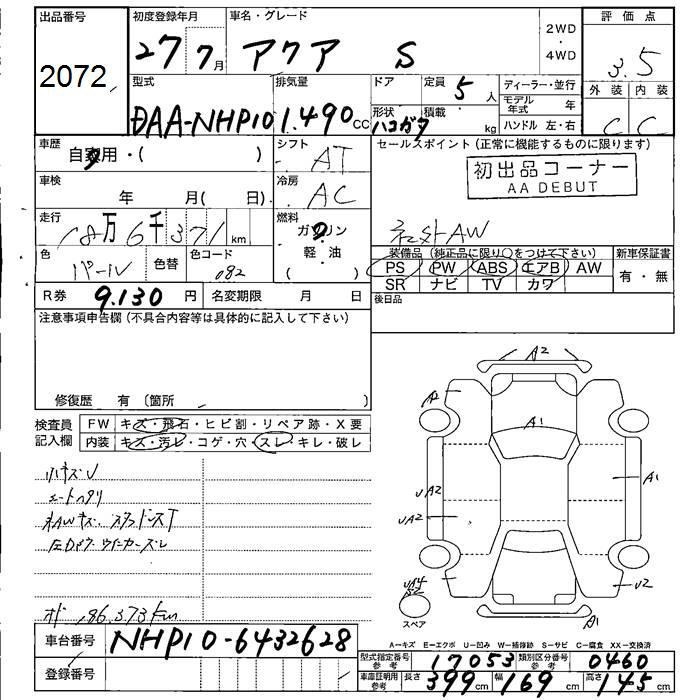 出品番号 初度登録年月 車名・グレード 評価点
2072 27 7月 アクア S 2WD・4WD 3.5
型式 排気量 ドア 定員 5人 ディーラー・並行 外装 内装
モデル年式 年
DAA-NHP10 1.490cc 形状 ハコガタ 積載 kg ハンドル 左・右 C C
車歴 自家用・( ) シフト AT セールスポイント (正常に機能するものに限ります)
初出品コーナー
AA DEBUT
車検 年 月( 日) 冷房 AC
走行 18万6千371km 燃料 ガソリン 軽・油 ( ) 社外AW
色 パール 色替 色コード 082
装備品 (純正品に限り○をつけて下さい) 新車保証書
PS PW ABS エアB AW 有・無
SR ナビ TV カワ
R券 9.130円 名変期限 月 日 後日品
注意事項申告欄(不具合内容等は具体的に記入して下さい)
修復歴 有 (箇所 )
検査員記入欄 FW キズ・飛石・ヒビ割・リペア跡・X要
内装 キズ・汚レ・コゲ・穴・スレ・キレ・破レ
小キズU
シートヘタリ
左Dドア ウインカーズレ
オド 186.373km
A2
A
A1
A1
UA2
UA2
UA4
U2
A1
スペア
車台番号 NHP10-6432628
登録番号
A-キズ E-エクボ U-凹み W-補修跡 S-サビ C-腐食 XX-交換済
型式指定番号 参考 17053 類別区分番号 参考 0460
車庫証明用 参考 長さ 399cm 幅 169cm 高さ 145cm